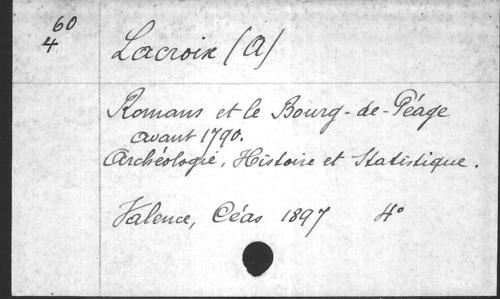 60
4
Lacroix (A)
Romans et le Bourg-de-Péage
avant 1790.
Archéologie, Histoire et Statistique.
Valence, Céas 1897 4°